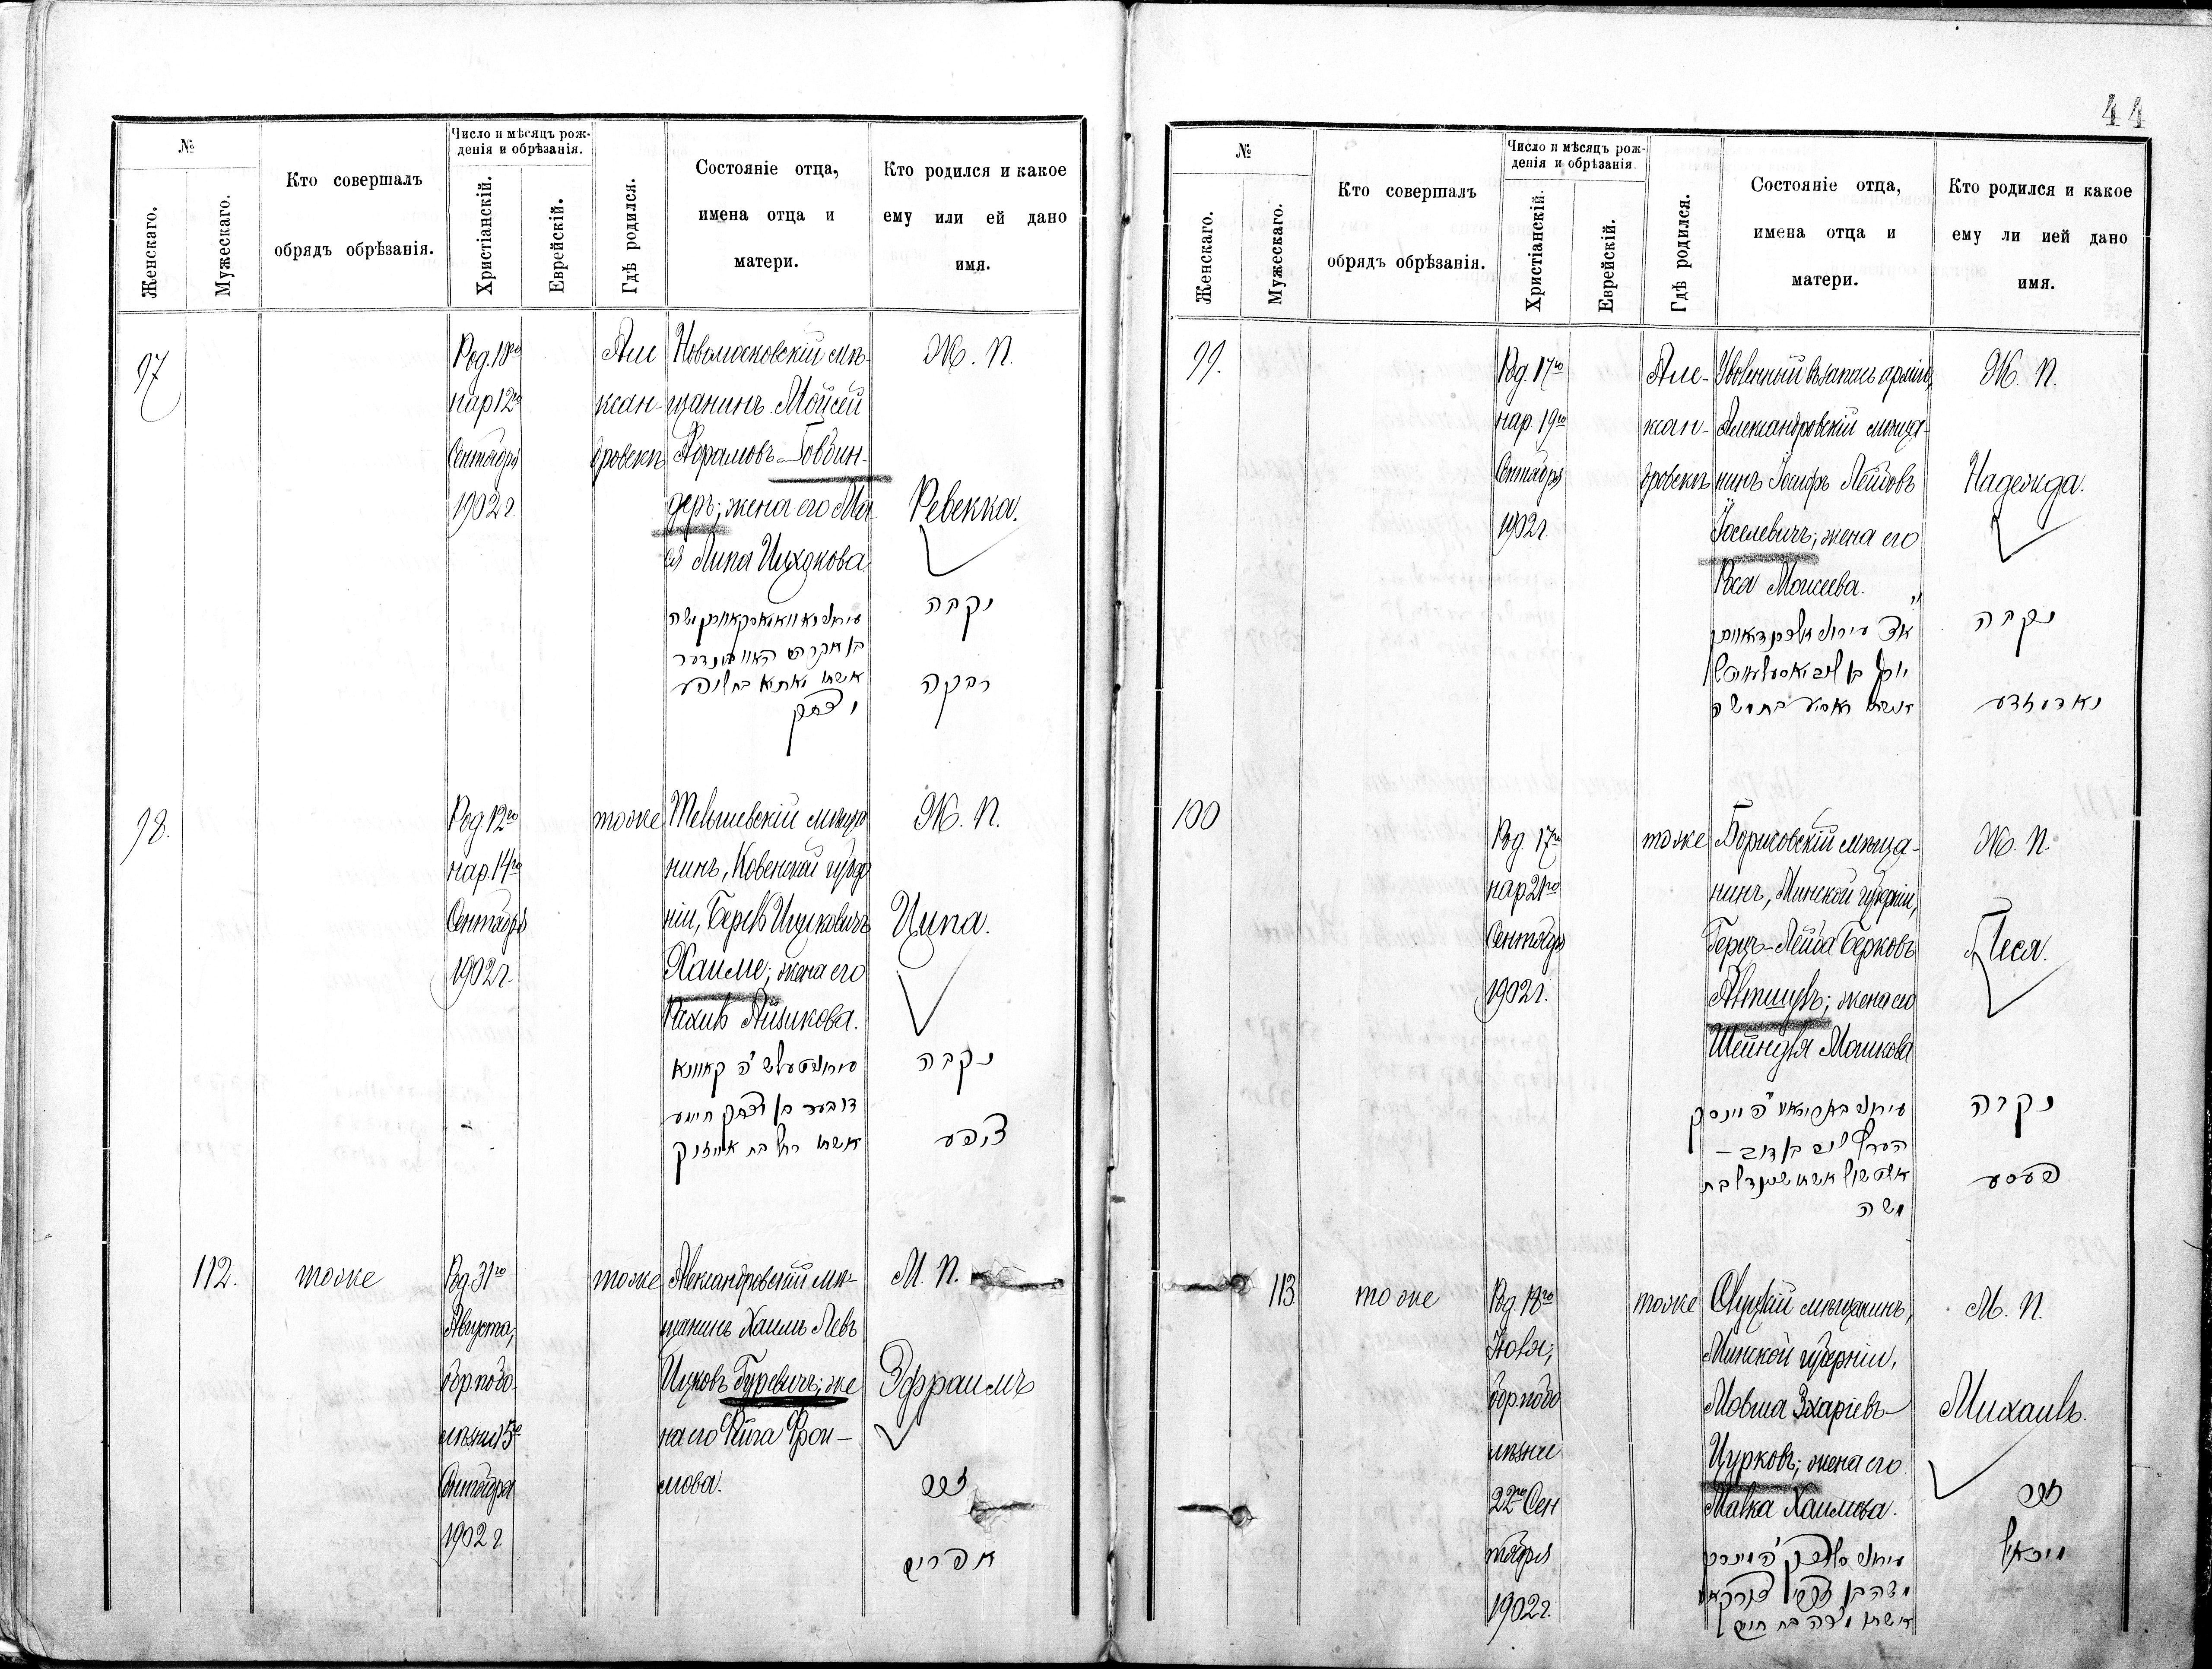 44
№
Женскаго.
Мужескаго.
Кто совершалъ
обрядъ обрѣзанія.
Число и мѣсяцъ рож-
денія и обрѣзанія.
Христіанскій.
Еврейскій.
Гдѣ родился.
Состояніе отца,
имена отца и
матери.
Кто родился и какое
ему или ей дано
имя.
97
Род. 18го
нар 12го
Сентября
1902 г.
Але
ксан-
дровскъ
Новомосковскій мѣ-
щанинъ Мойсей
Абрамовъ Говбин-
деръ; жена его
Липа
Ж. П.
Ревекка.
נקבה
רבקה
98.
Род 12го
нар. 14го
Сентября
1902 г.
тоже
Тельшевскій мѣща
нинъ, Ковенской губер
ніи, Берель Ицковичъ
Хаиме; жена его
Рахиль Айзикова.
דובער בן יצחק חיימע
אשתו רחל בת אייזיק
Ж. П.
Ципа.
נקבה
ציפע
112.
тоже
Род 31го
Августа,
обр. подо-
мѣни 15го
Сентября
1902 г
тоже
Александровскій мѣ-
щанинъ Хаимъ Левъ
Ицковъ Гуревичъ; же
на его Фейга Фрои-
мова.
М. П.
Эфраимъ
זכר
אפרים
№
Женскаго.
Мужескаго.
Кто совершалъ
обрядъ обрѣзанія.
Число и мѣсяцъ рож-
денія и обрѣзанія
Христіанскій.
Еврейскій.
Гдѣ родился.
Состояніе отца,
имена отца и
матери.
Кто родился и какое
ему ли ией дано
имя.
99.
Род. 17го
нар. 19го
Сентября
1902 г.
Але-
ксан-
дровскъ
Уволенный въ запасъ арміи,
Александровскій мѣща-
нинъ Іосифъ Лейбовъ
Іоселевичъ; жена его
Рася Моисеева.
Ж. П.
Надежда.
נקבה
נאדעזדע
100
Род. 17го
нар 21го
Сентября
1902 г.
тоже
Борисовскій мѣща-
нинъ, Минской губерніи,
Герцъ-Лейба Берковъ
жена его
Шейндля Мошкова
הערץ ליב בן דוב –
אשתו שיינדל בת
משה
Ж. П.
Песя.
נקבה
פעסע
113
тоже
Род. 18го
обр. подо
мѣние
22го Сен
тября
1902 г.
тоже
Слуцкій мѣщанинъ,
Минской губерніи,
Мовша Зхаріевъ
Цурковъ; жена его
Малка Хаимова.
אשתו מלכה בת חיים
М. П.
Михаилъ.
זכר
מיכאל